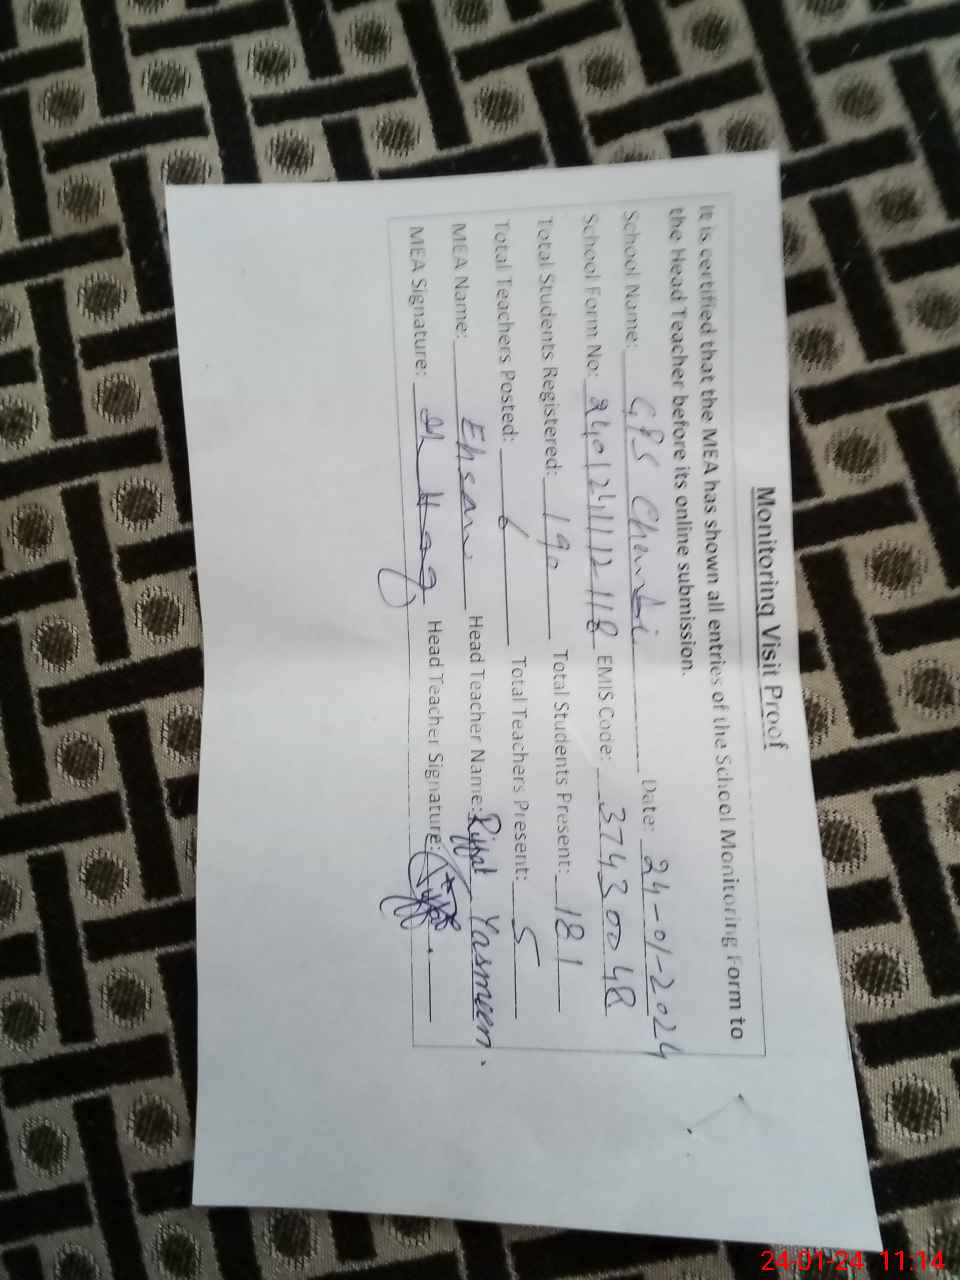 Monitoring Visit Proof
It is certified that the MEA has shown all entries of the School Monitoring Form to
the Head Teacher before its online submission.
School Name: GPS Date: 24-01-2024
School Form No: EMIS Code: 37430048
Total Students Registered: 190 Total Students Present: 181
Total Teachers Posted: 6 Total Teachers Present: 5
MEA Name: Ehsan Head Teacher Name: Riffat Yasmeen.
MEA Signature: Head Teacher Signature:
24-01-24 11:14